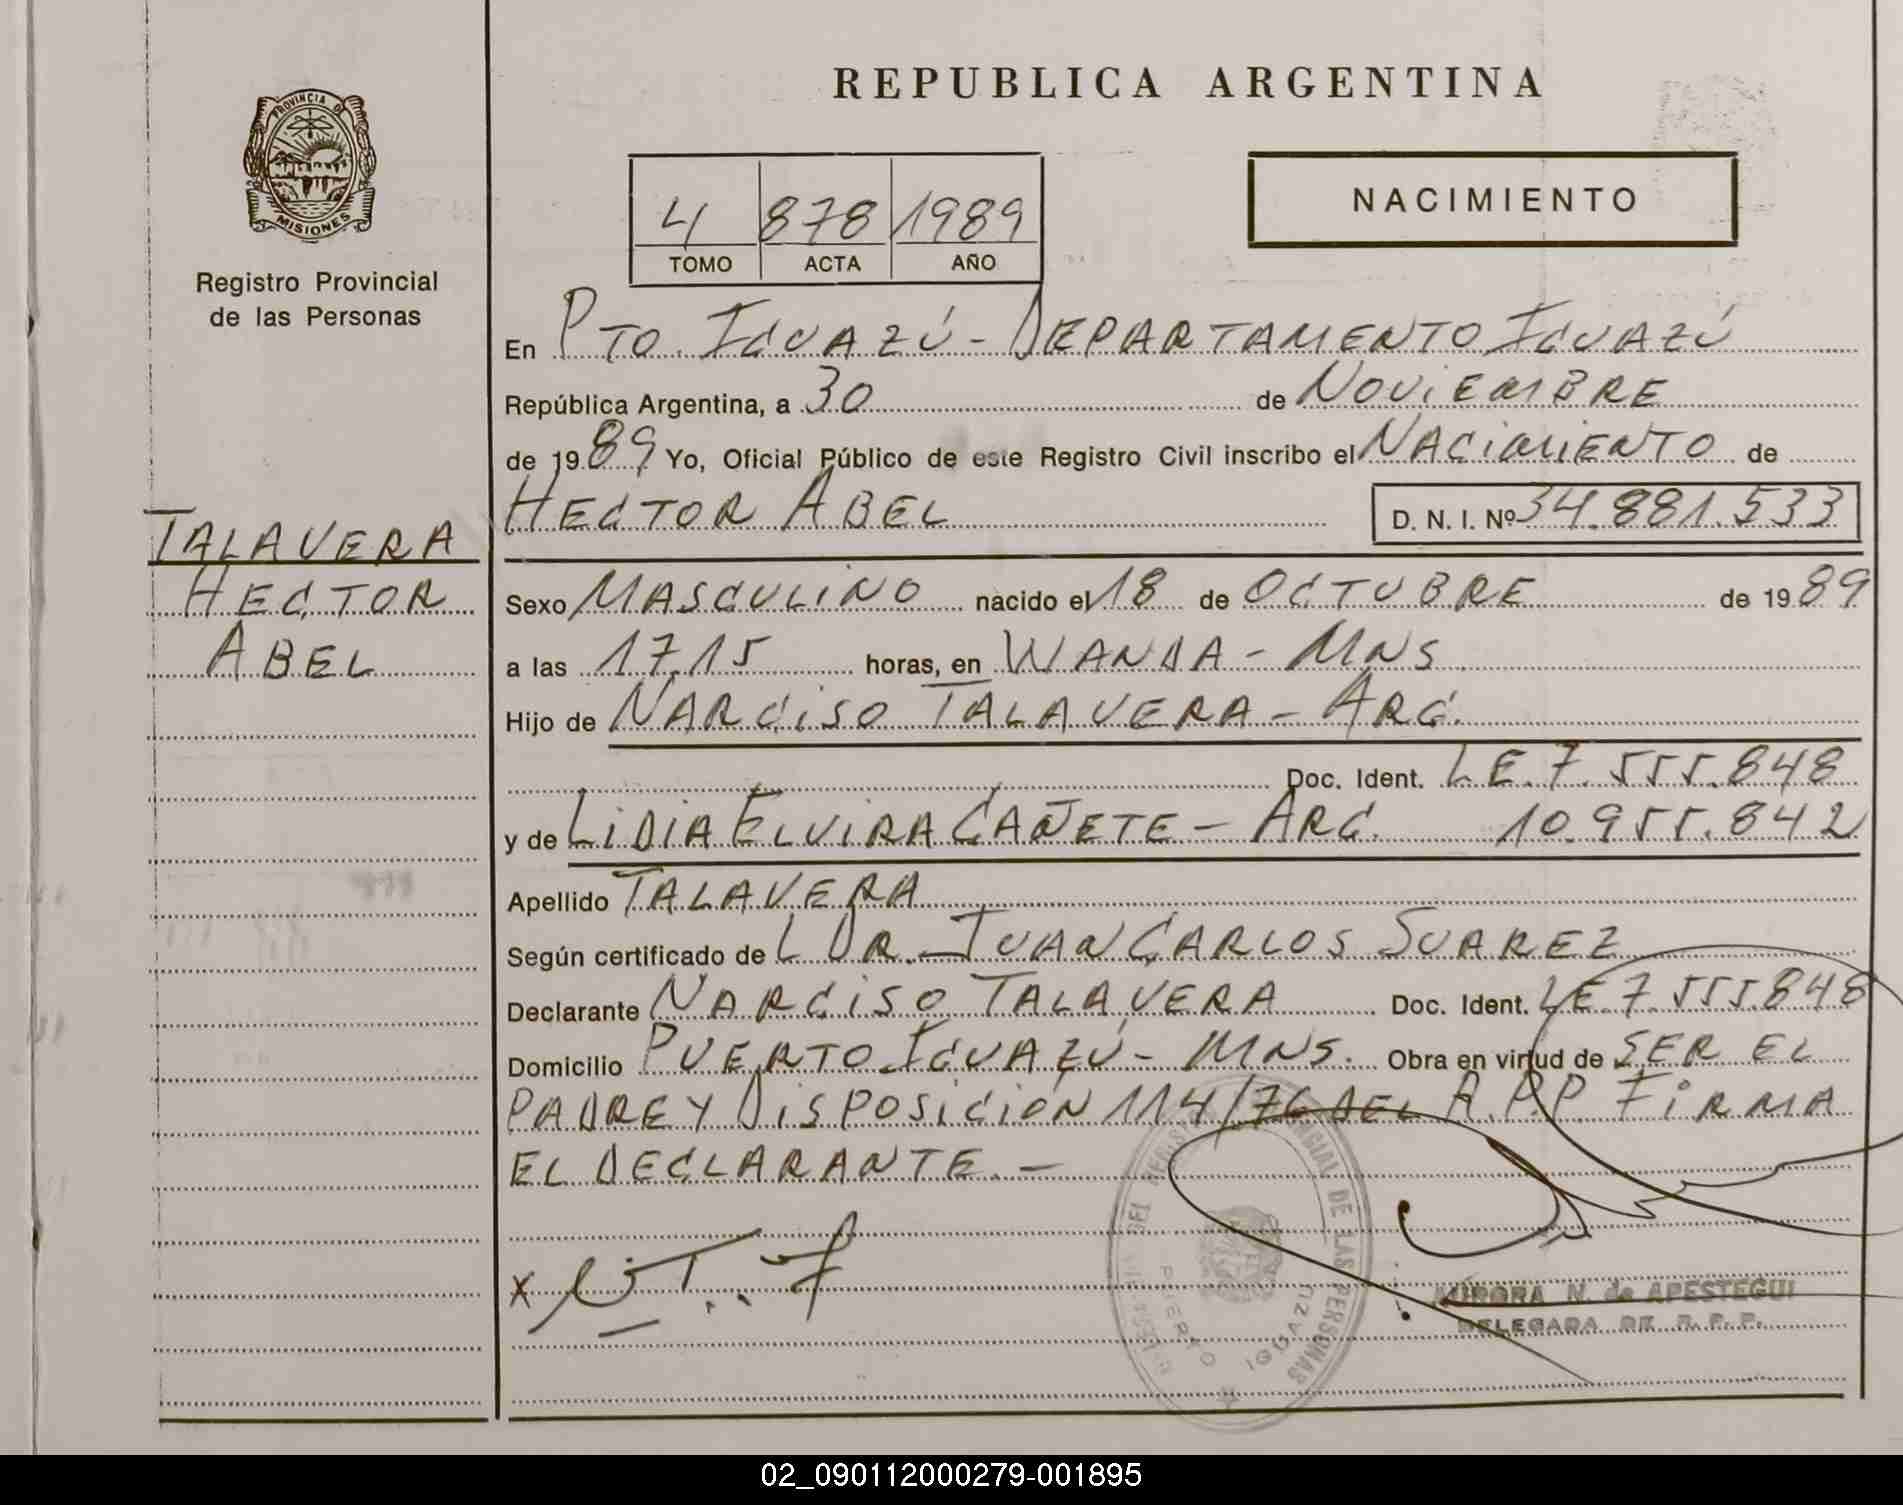 REPUBLICA ARGENTINA
PROVINCIA DE
MISIONES
Registro Provincial
de las Personas
4 878 1989
TOMO ACTA AÑO
NACIMIENTO
En PTO. IGUAZÚ - DEPARTAMENTO IGUAZÚ
República Argentina, a 30 de NOVIEMBRE
de 1989 Yo, Oficial Público de este Registro Civil inscribo el NACIMIENTO de
HECTOR ABEL D. N. I. Nº 34.881.533
TALAVERA
HECTOR
ABEL
Sexo MASCULINO nacido el 18 de OCTUBRE de 1989
a las 17.15 horas, en WANDA - MNS
Hijo de NARCISO TALAVERA - ARG.
Doc. Ident. LE. 7.555.848
y de LIDIA ELVIRA CAÑETE - ARG. 10.955.842
Apellido TALAVERA
Según certificado de L DR. JUAN CARLOS SUAREZ
Declarante NARCISO TALAVERA Doc. Ident. LE. 7.555.848
Domicilio PUERTO IGUAZÚ - MNS. Obra en virtud de SER EL
PADRE Y DISPOSICIÓN 114/76 DEL R.P.P. FIRMA
EL DECLARANTE. -
X
DEL REGISTRO PROVINCIAL DE LAS PERSONAS
IGUAZU
AURORA N. de APESTEGUI
DELEGADA DE R. P. P.
02_090112000279-001895